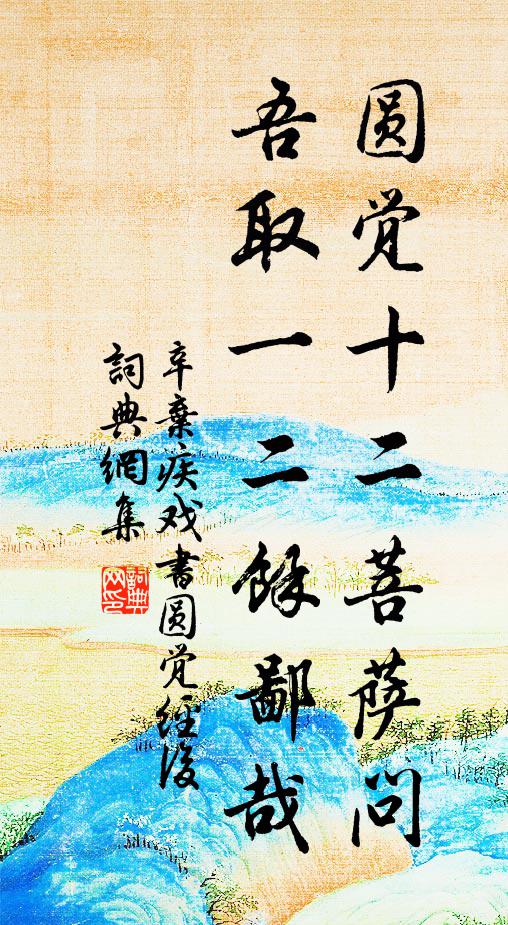 圆觉十二菩萨问
吾取一二馀鄙哉
辛棄疾戏書圆觉經後
詞典網集
詞典網印